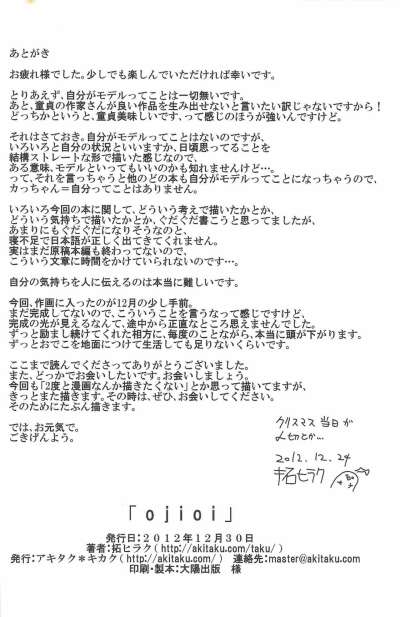 あとがき
お疲れ様でした。少しでも楽しんでいただければ幸いです。
とりあえず、自分がモデルってことは一切無いです。
あと、童貞の作家さんが良い作品を生み出せないと言いたい訳じゃないですから！
どっちかというと、童貞美味しいです、って感じのほうが強いんですけど。
それはさておき。自分がモデルってことはないのですが、
いろいろと自分の状況といいますか、日頃思ってることを
結構ストレートな形で描いた感じなので、
ある意味、モデルといってもいいのかも知れませんけど…。
って、それを言っちゃうと他のどの本も自分がモデルってことになっちゃうので、
かっちゃん＝自分ってことはありません。
いろいろ今回の本に関して、どういう考えで描いたかとか、
どういう気持ちで描いたかとか、ぐだぐだ書こうと思ってましたが、
あまりにもぐだぐだになりそうなのと、
寝不足で日本語が正しく出てきてくれません。
実はまだ原稿本編も終わってないので、
こういう文章に時間をかけていられないのです…。
自分の気持ちを人に伝えるのは本当に難しいです。
今回、作画に入ったのが12月の少し手前。
まだ完成してないので、こういうことを言うなって感じですけど、
完成の光が見えるなんて、途中から正直なところ思えませんでした。
ずっと励まし続けてくれた相方に、毎度のことながら、本当に頭が下がります。
ずっとおでこを地面につけて生活しても足りないくらいです。
ここまで読んでくださってありがとうございました。
また、どっかでお会いしたいです。お会いしましょう。
今回も「2度と漫画なんか描きたくない」とか思って描いてますが、
きっとまた描きます。その時は、ぜひ、お会いしてください。
そのためにたぶん描きます。
では、お元気で。
ごきげんよう。
クリスマス当日が
〆切とか…
2012.12.24
拓ヒラク
「ojioi」
発行日：２０１２年１２月３０日
著者：拓ヒラク（http://akitaku.com/taku/）
発行：アキタク＊キカク（http://akitaku.com/） 連絡先：master@akitaku.com
印刷・製本：大陽出版　様